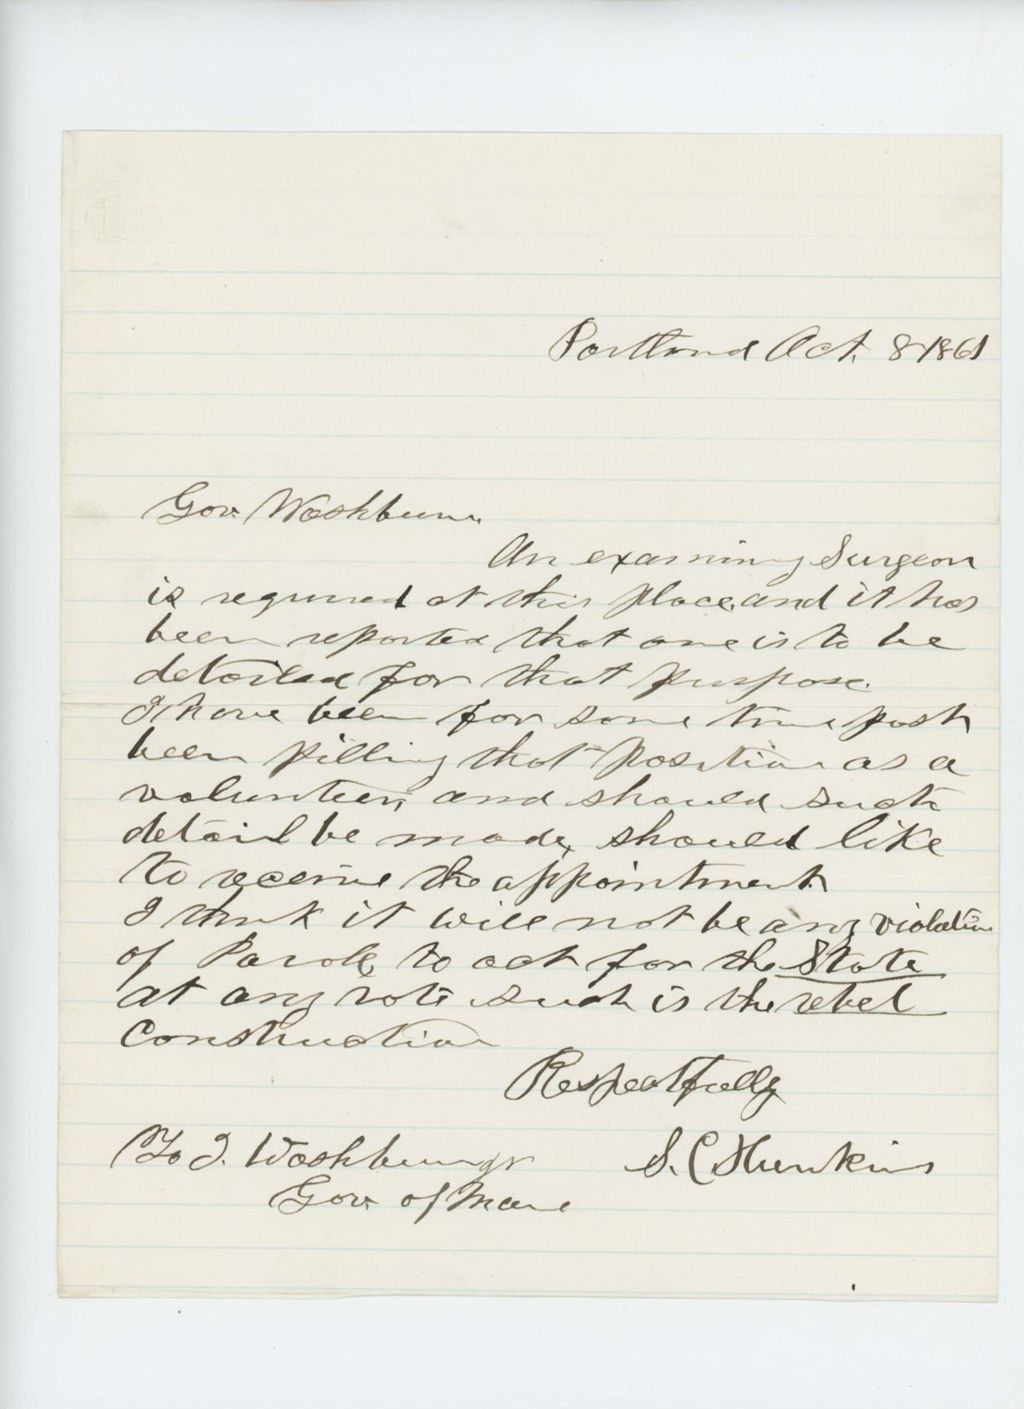 Portland Oct. 8 1861
Gov. Washburn.
An examining Surgeon
is required at this place, and it has
been reported that one is to be
detailed for that purpose.
I have been for some time past
been filling that position as a
volunteer, and should such
detail be made, should like
to receive the appointment.
I think it will not be any violation
of Parole, to act for the State
at any rate such is the rebel
construction
Respectfully
To I. Washburn Jr S. C. Hunkins
Gov. of Maine